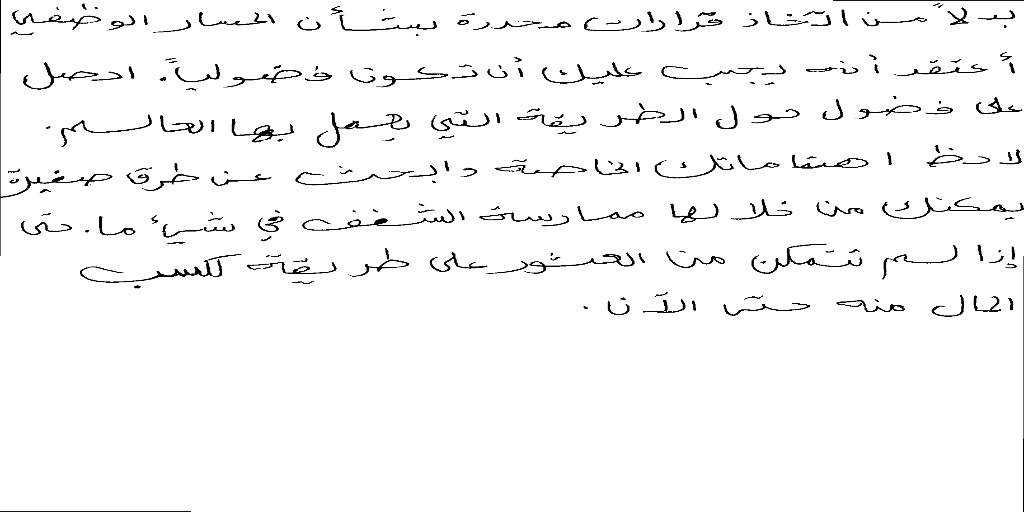 بدلاً من اتخاذ قرارات محددة بشأن المسار الوظيفي
أعتقد أنه يجب عليك أن تكون فضولياً. احصل
على فضول حول الطريقة التي يعمل بها العالم.
لاحظ اهتماماتك الخاصة وابحث عن طرق صغيرة
يمكنك من خلالها ممارسة الشغف في شيء ما. حتى
إذا لم تتمكن من العثور على طريقة لكسب
المال منه حتى الآن.